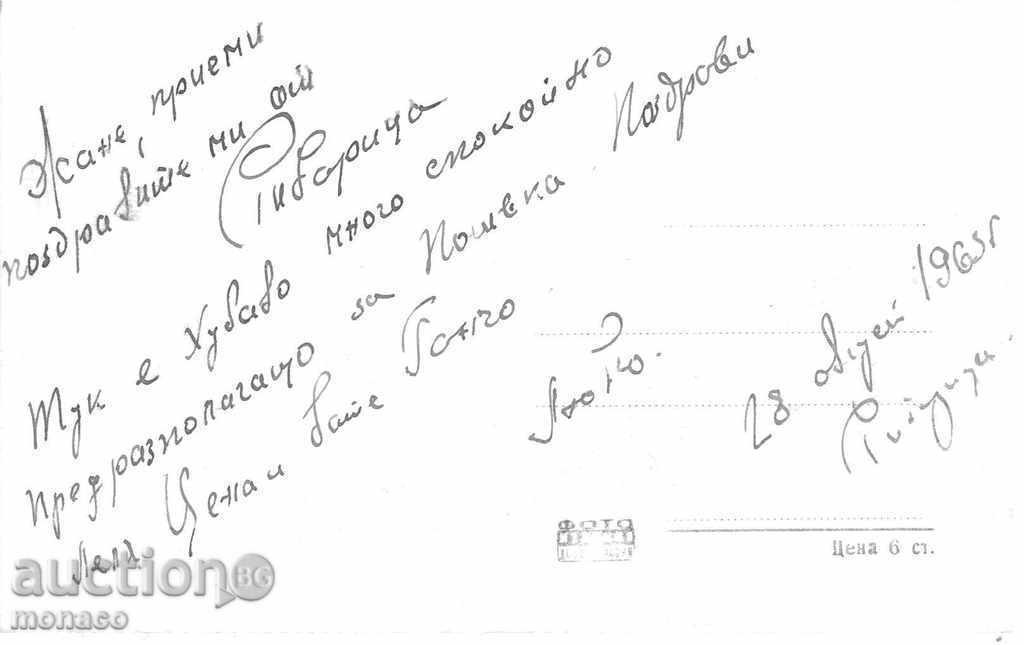 Жане, приеми
поздравите ми от
Рибарица
Тук е хубаво много спокойно
предразполагащо за почивка Поздрави
леля Цена и бате Ганчо
Любо.
28 август 1963г
Рибарица.
ФОТО
Цена 6 ст.
auction BG
monaco